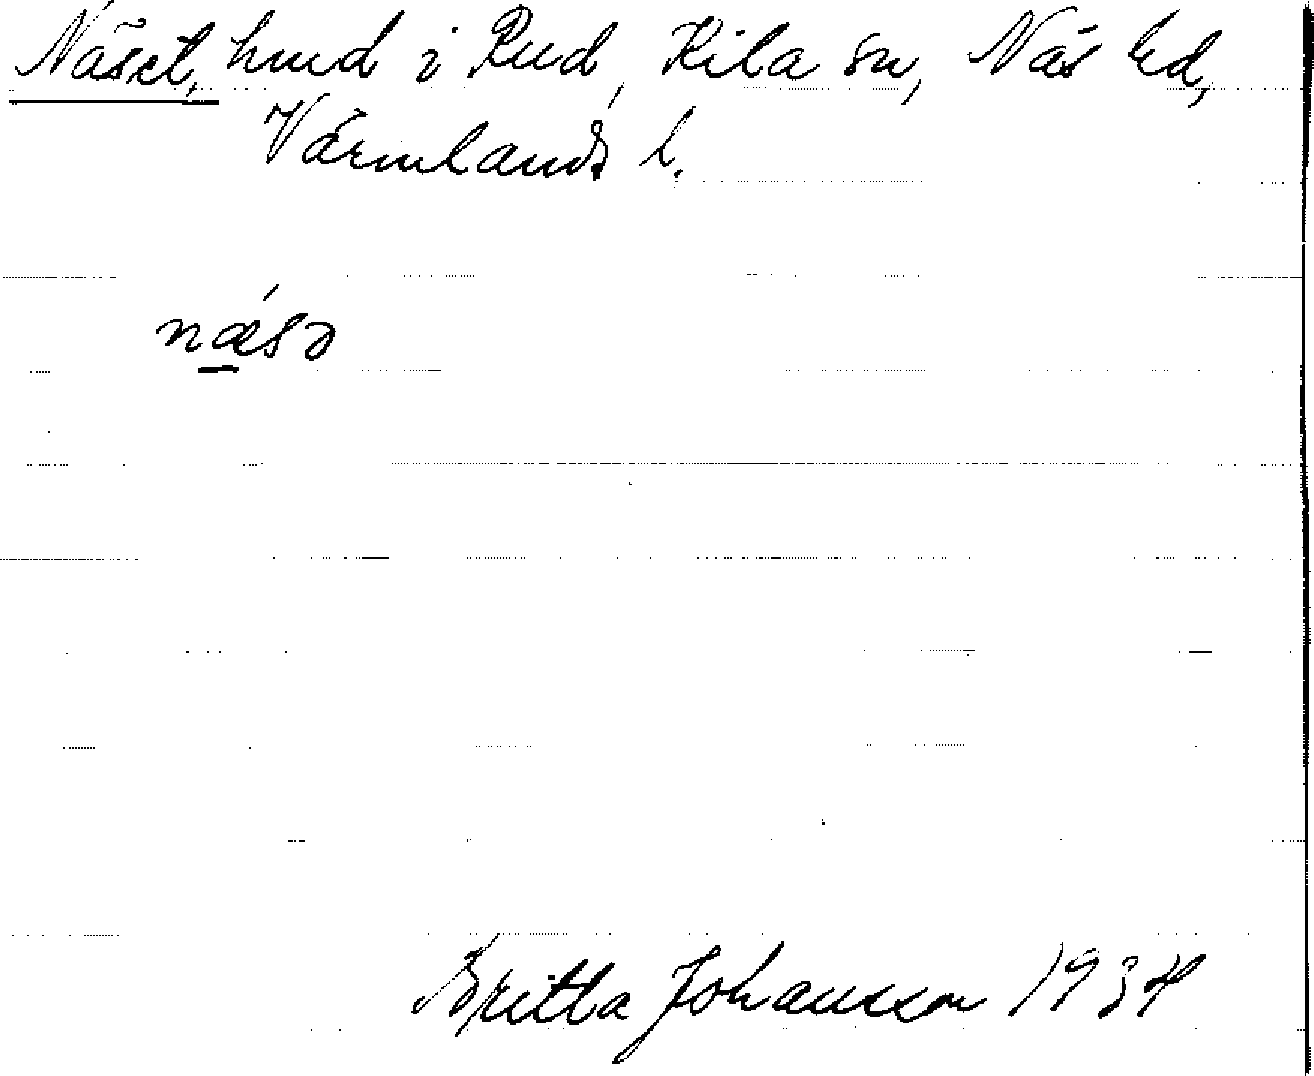 Näset, hmd i Rud, Kila sn, Näs hd,
Värmlands l.
nǽ̲sə
Britta Johansson 1934